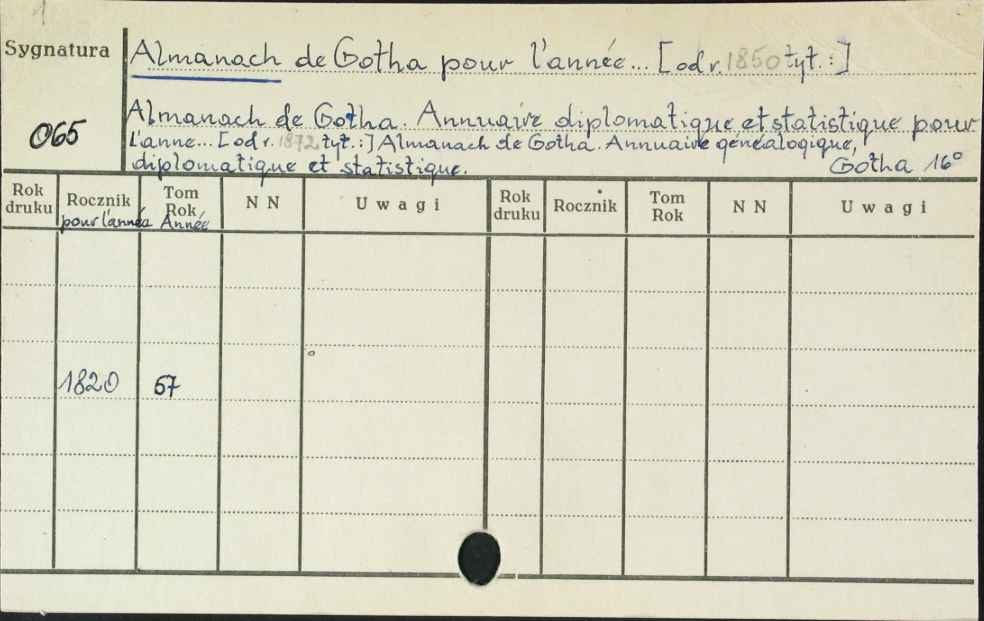 1
Sygnatura
Almanach de Gotha pour l'année... [od r. 1850 tyt.:]
065
Almanach de Gotha. Annuaire diplomatique et statistique pour
l'anne... [od r. 1872 tyt.:] Almanach de Gotha. Annuaire généalogique,
diplomatique et statistique. Gotha 16°
Rok druku Rocznik pour l'année Tom Rok Année NN Uwagi Rok druku Rocznik Tom Rok NN Uwagi
1820 57